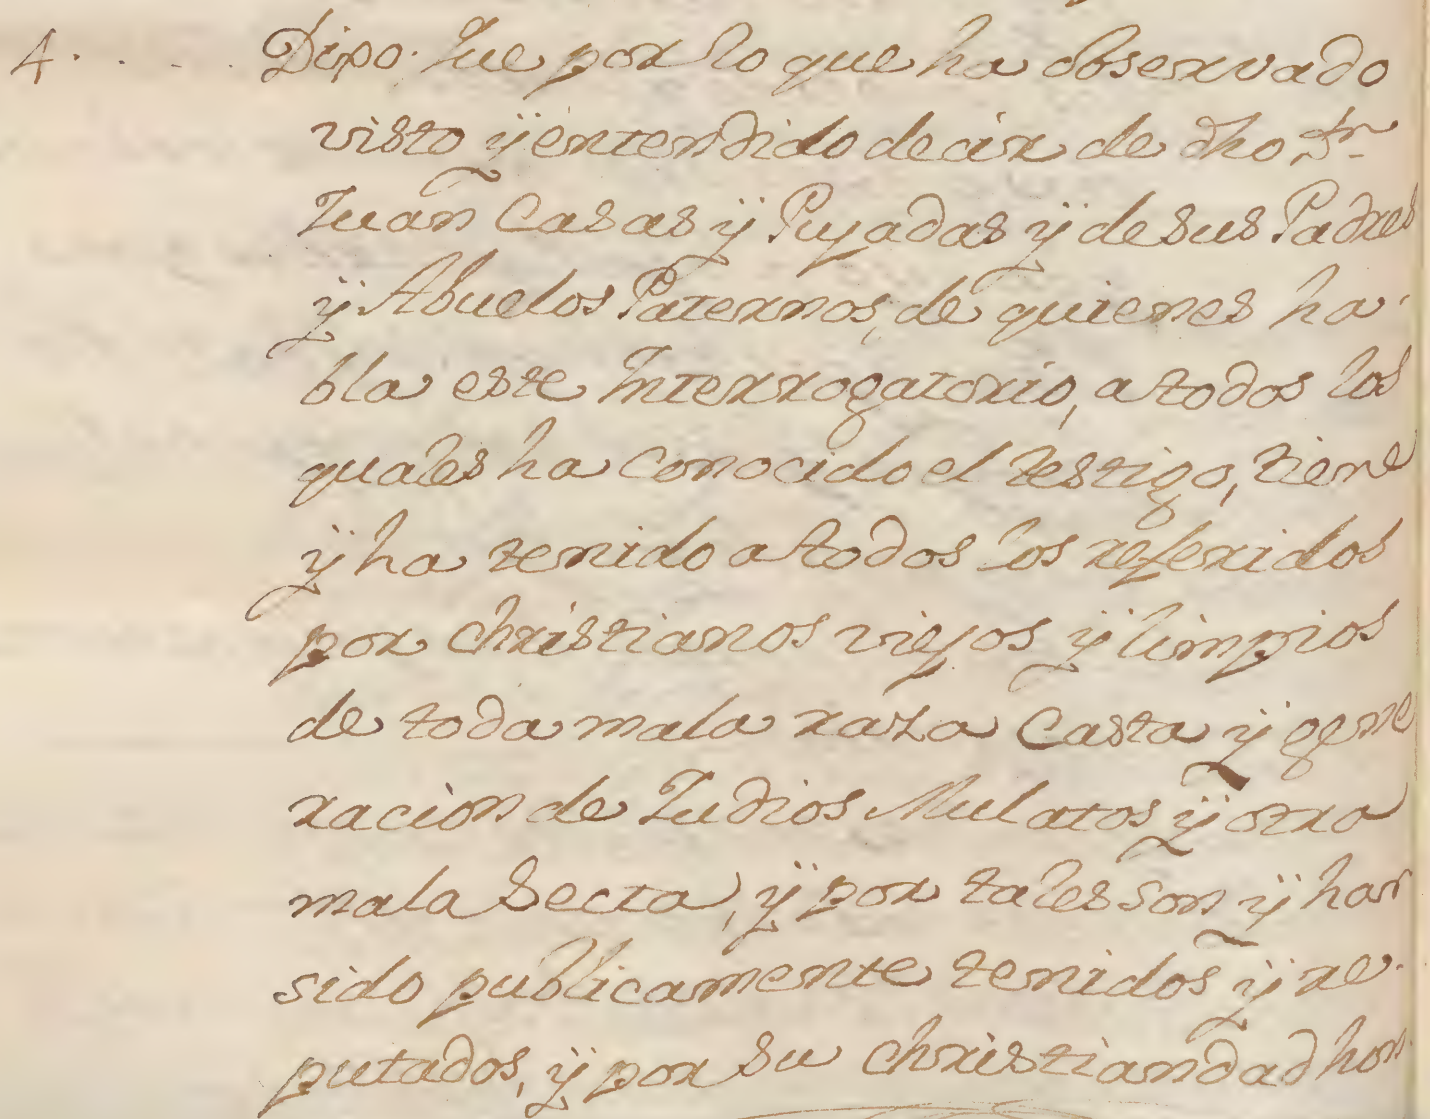 4. . . . . Dixo. Que por lo que ha observado
visto ÿ entendido decir de dho Sr.
Juan Casas ÿ Puyadas ÿ de sus Padres
ÿ Abuelos Paternos, de quienes ha-
bla este Interrogatorio, a todos los
quales ha conocido el testigo, tiene
ÿ ha tenido a todos los referidos
por christianos viejos ÿ limpios
de toda mala raza Casta ÿ gene
racion de Judios Mulatos ÿ otra
mala Secta, ÿ por tales son ÿ han
sido publicamente tenidos ÿ re-
putados, ÿ por su christiandad hon